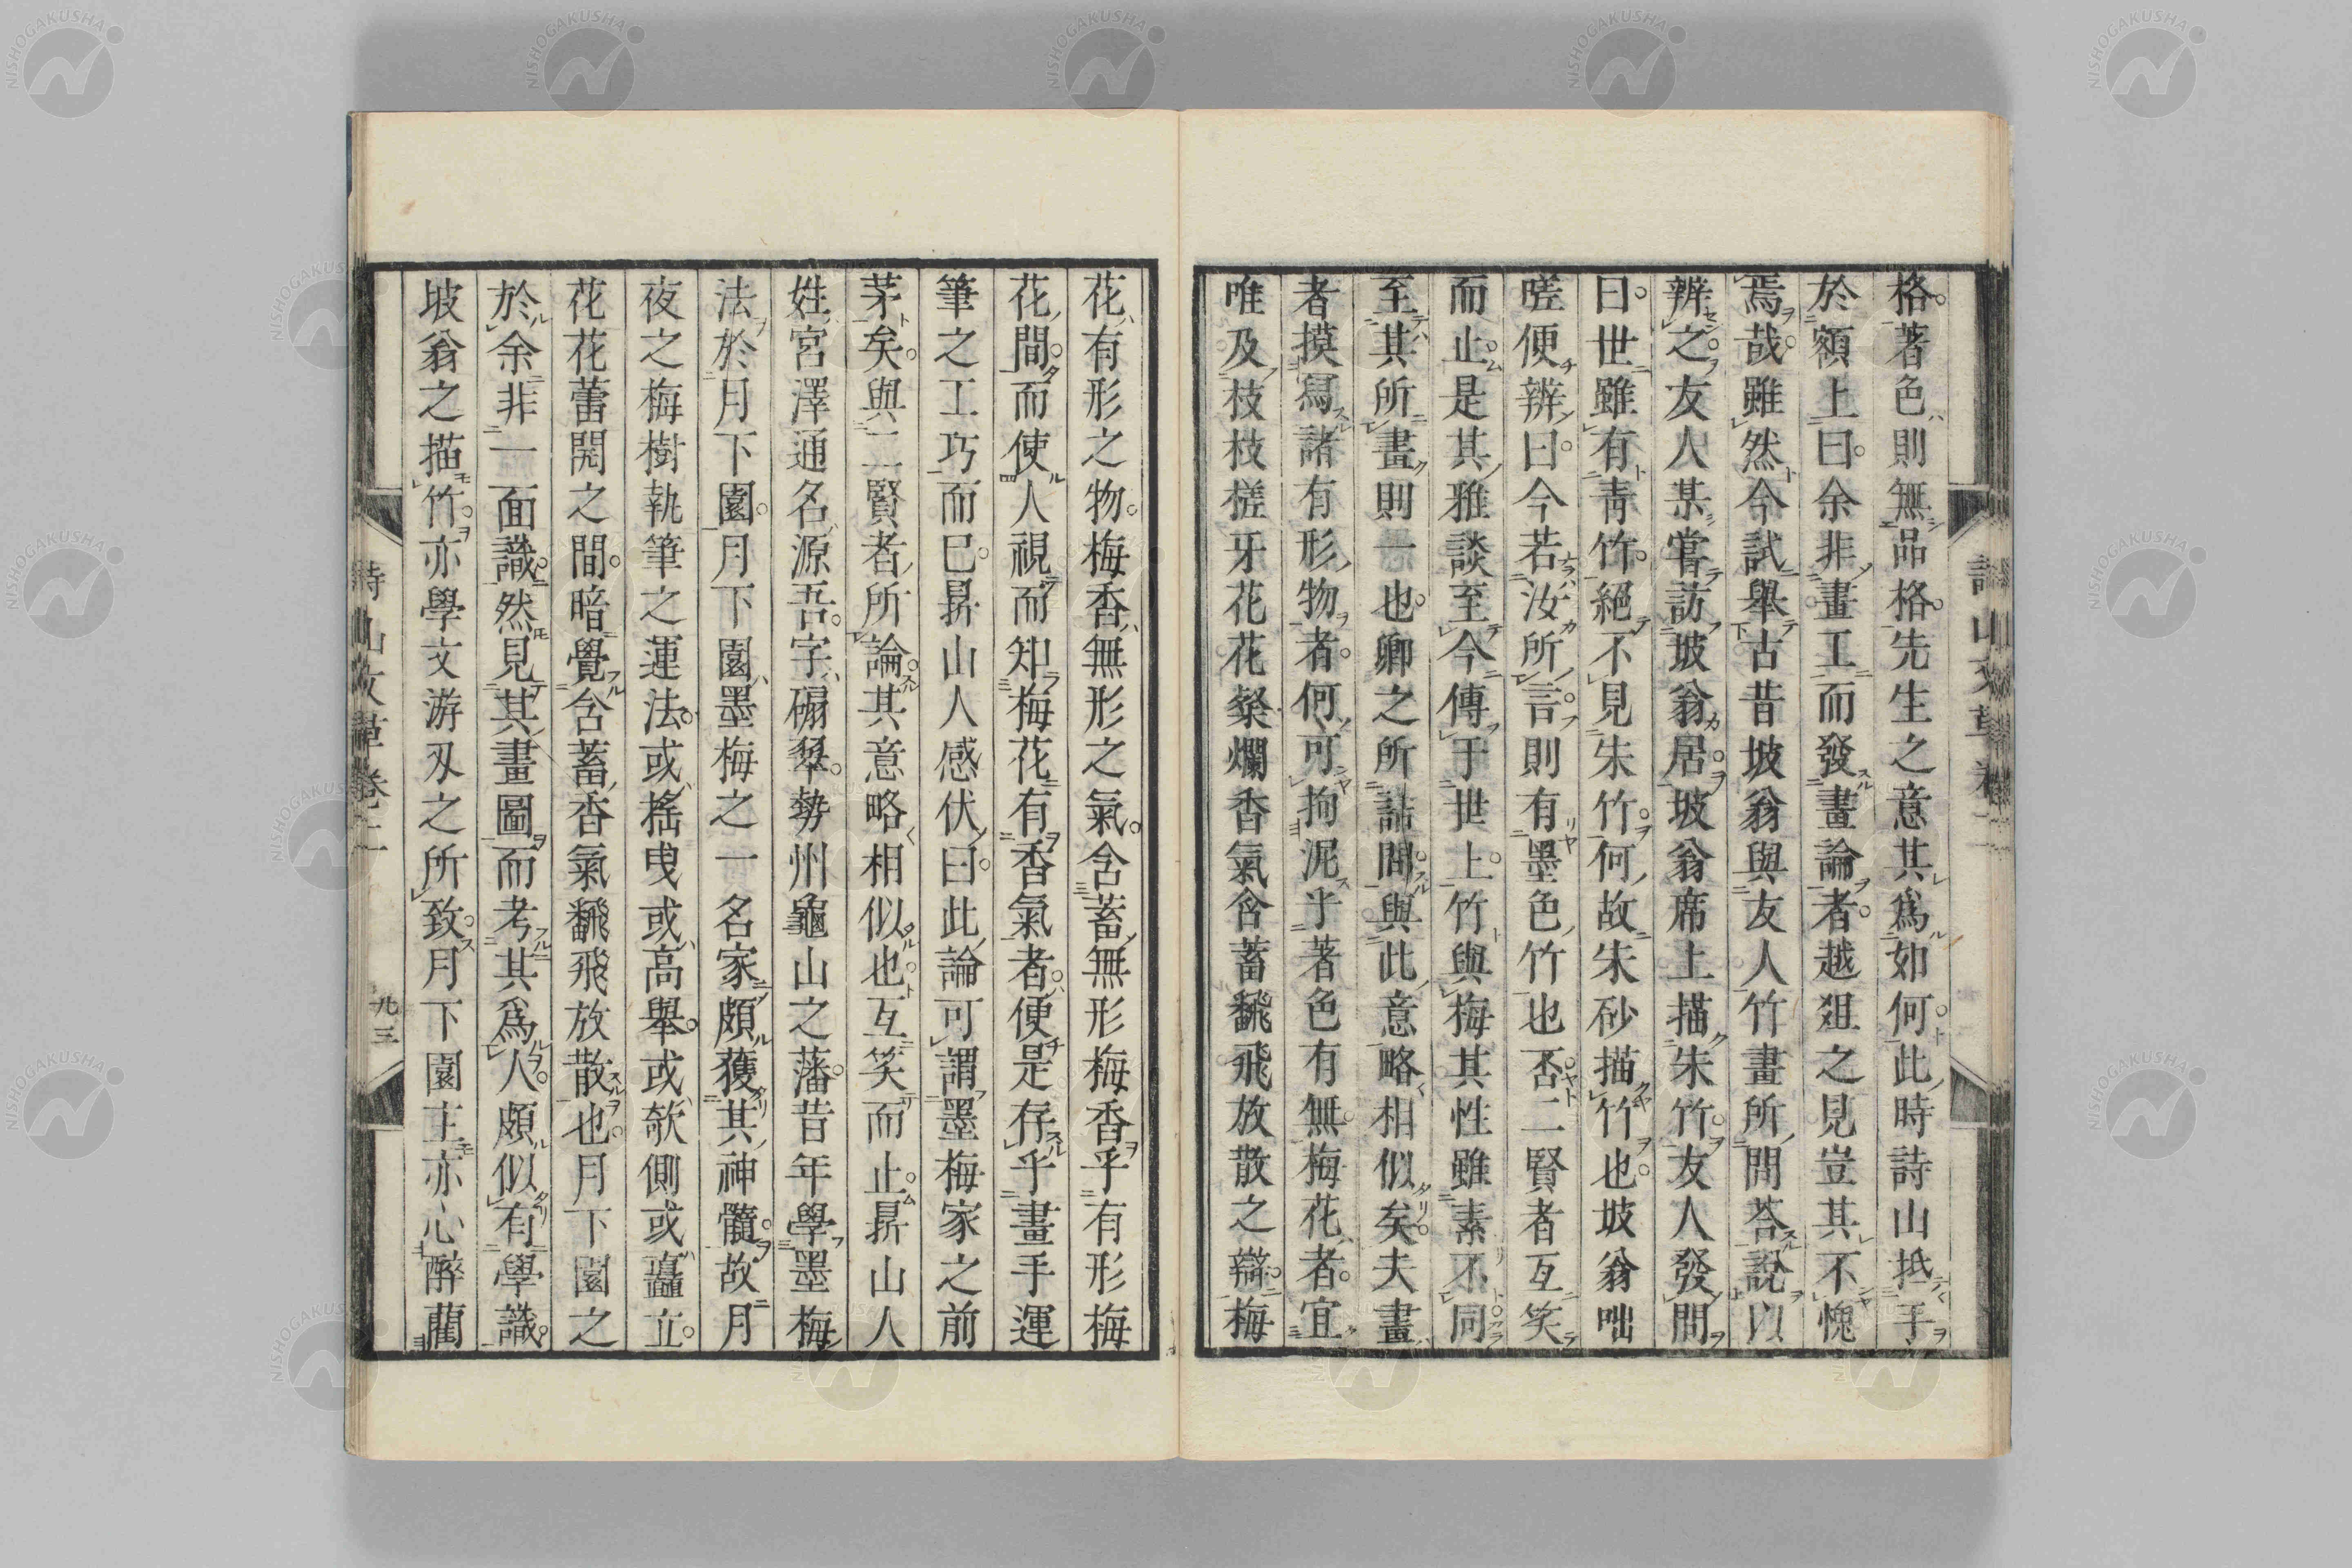 格著色則無品格先生之意其爲如何此時詩山抵手
於額上曰余非畫工而發畫論者越爼之見豈其不愧
焉哉雖然今試舉古昔坡翁與友人竹畫所問荅説以
辨之友人某嘗訪坡翁居坡翁席上描朱竹友人發問
曰世雖有靑竹絕不見朱竹何故朱砂描竹也坡翁咄
嗟便辨曰今若汝所言則有墨色竹也否二賢者互笑
而止是其雅談至今傳于世上竹與梅其性雖素不同
至其所畫則一也卿之所詰問與此意略相似矣夫畫
者摸寫諸有形物者何可拘泥乎著色有無梅花者宜
唯及枝枝槎牙花花粲爛香氣含蓄飜飛放散之辯梅
花有形之物梅香無形之氣含蓄無形梅香乎有形梅
花間而使人視而知梅花有香氣者便是存乎畫手運
筆之工巧而已曻山人感伏曰此論可謂墨梅家之前
茅矣與二賢者所論其意略相似也互笑而止曻山人
姓宮澤通名源吾字碙琴勢州龜山之藩昔年學墨梅
法於月下園月下園墨梅之一名家頗獲其神髓故月
夜之梅樹執筆之運法或搖曳或高舉或欹側或矗立
花花蕾開之間暗覺含蓄香氣飜飛放散也月下園之
於余非一面識然見其畫圖而考其爲人頗似有學識
坡翁之描竹亦學文游刄之所致月下園主亦心醉藺
詩山文草卷二
九三